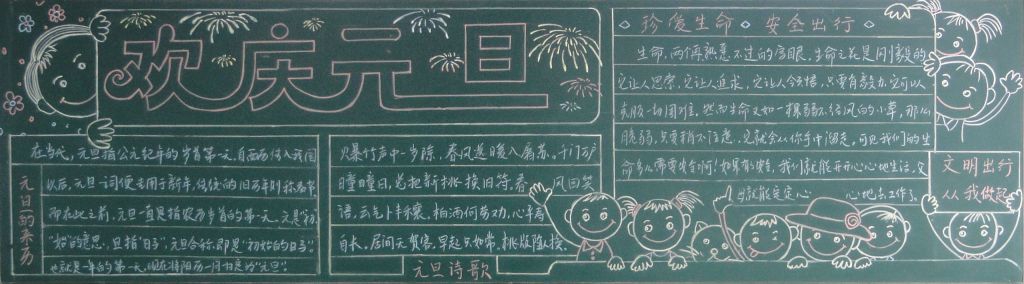 欢庆元旦
元旦的来历
在当代，元旦指公元纪年的岁首第一天，自西历传入我国
以后，元旦一词便专用于新年，传统的旧历年则称春节
而在此之前，元旦一直是指农历岁首的第一天。元是"初"
"始"的意思，旦指"日子"，元旦合称即是"初始的日子"，
也就是一年的第一天，现在将阳历一月一日定为"元旦"。
爆竹声中一岁除，春风送暖入屠苏。千门万户
曈曈日，总把新桃换旧符。春 风回笑
语，云气卜丰穰，柏酒何劳劝，心平寿
自长，居间无贺客，早起只如常，桃版随人换，
元旦诗歌
珍爱生命 安全出行
生命，两个再熟悉不过的字眼，生命之花是
它让人思索，它让人追求，它让人今
克服一切困难，然而生命又如一棵弱不经风的小草，那么
脆弱，只要稍不注意，它就会从你手中溜走，可见我们的生
命多么需要
就能安定心 心地去工作了
文明出行
从我做起